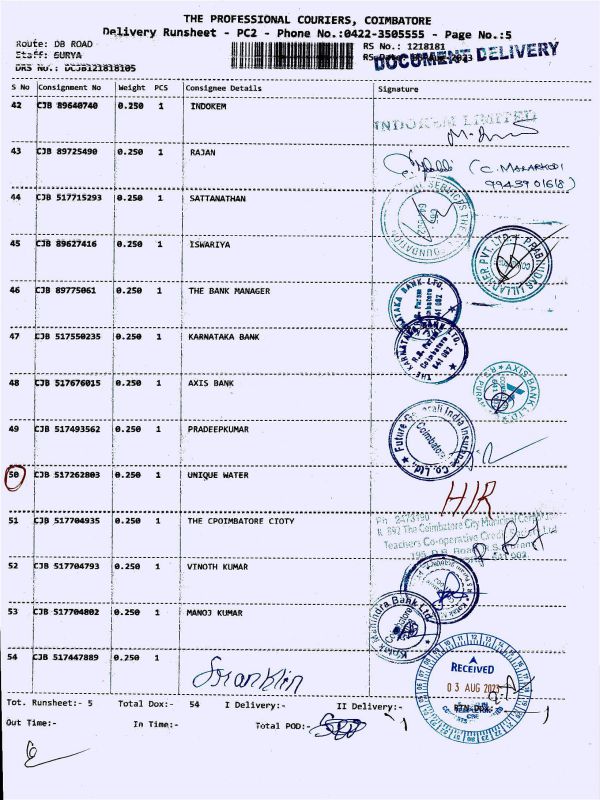 THE PROFESSIONAL COURIERS, COIMBATORE
Delivery Runsheet - PC2 - Phone No.:0422-3505555 - Page No.:5
Route: DB ROAD
RS No.: 1218181
Staff: SURYA
DOCUMENT DELIVERY
DRS No.: DCJB121818105
S No Consignment No Weight PCS Consignee Details Signature
42 CJB 89640740 0.250 1 INDOKEM
INDOKEM LIMITED
43 CJB 89725490 0.250 1 RAJAN
9943901618)
44 CJB 517715293 0.250 1 SATTANATHAN
45 CJB 89627416 0.250 1 ISWARIYA
46 CJB 89775061 0.250 1 THE BANK MANAGER
47 CJB 517550235 0.250 1 KARNATAKA BANK
THE KARNATAKA BANK LTD.
R.S. Puram
Coimbatore
641 002
48 CJB 517676015 0.250 1 AXIS BANK
AXIS BANK LTD
49 CJB 517493562 0.250 1 PRADEEPKUMAR
Future Generali India Insurance Co. Ltd.,
Coimbatore
50 CJB 517262803 0.250 1 UNIQUE WATER
H/R
51 CJB 517704935 0.250 1 THE CPOIMBATORE CIOTY
Ph: 2473190
R 892 The Coimbatore City Municipal
Teachers Co-operative Credit
52 CJB 517704793 0.250 1 VINOTH KUMAR
53 CJB 517704802 0.250 1 MANOJ KUMAR
Kotak Mahindra Bank Ltd
54 CJB 517447889 0.250 1
Franklin
RECEIVED
03 AUG 2023
Tot. Runsheet:- 5 Total Dox:- 54 I Delivery:- II Delivery:-
Out Time:- In Time:- Total POD:-